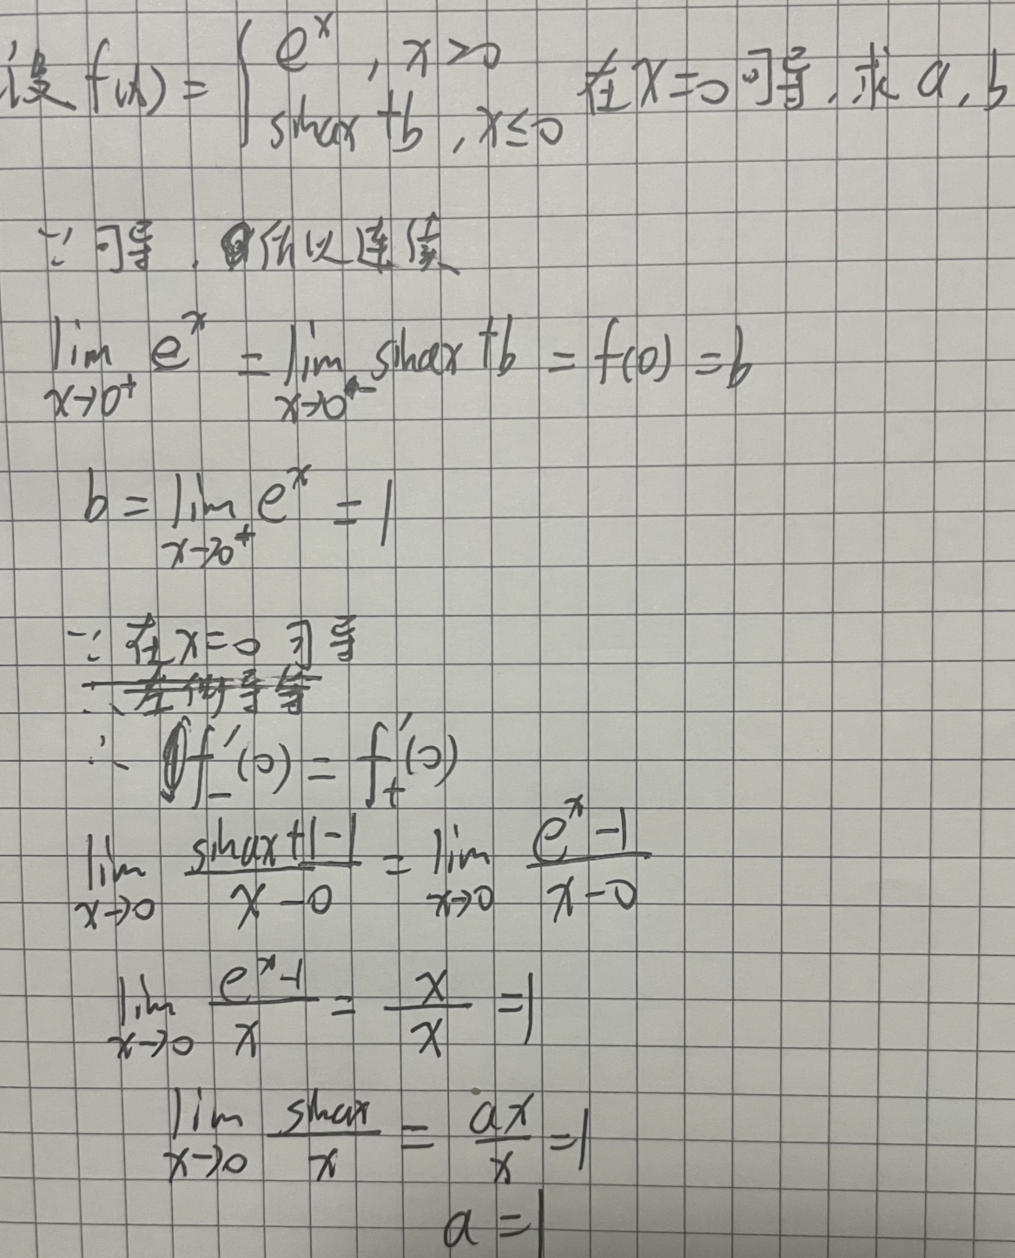 设 f(x) = { e^x , x>0
sinax +b , x≤0 在x=0可导, 求 a, b
∵ 可导 , 所以连续
lim x→0⁺ e^x = lim x→0⁻ sinax +b = f(0) = b
b = lim x→0⁺ e^x = 1
∵ 在x=0 可导
∴ f₋′(0) = f₊′(0)
lim x→0 (sinax+1-1)/(x-0) = lim x→0 (e^x-1)/(x-0)
lim x→0 (e^x-1)/x = x/x =1
lim x→0 sinax/x = ax/x =1
a =1